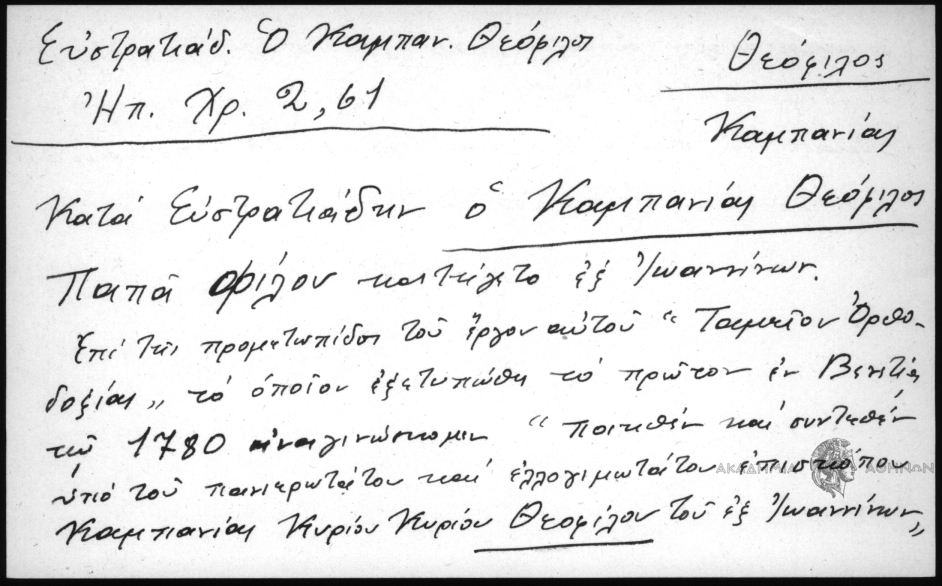 Εὐστρατιάδ. Ὁ Καμπαν. Θεόφιλος
Θεόφιλος
Ἠπ. Χρ. 2, 61
Καμπανίας
Κατά Εὐστρατιάδην ὁ Καμπανίας Θεόφιλος
Παπᾶ Φίλου κατήγετο ἐξ Ἰωαννίνων.
Ἐπί τῆς προμετωπίδος τοῦ ἔργου αὐτοῦ “Ταμεῖον Ὀρθο-
δοξίας„ τό ὁποῖον ἐξετυπώθη τό πρῶτον ἐν Βενετίᾳ
τῷ 1780 ἀναγινώσκομεν “ποιηθέν καί συντεθέν
ὑπό τοῦ πανιερωτάτου καί ἐλλογιμωτάτου ἐπισκόπου
ΑΚΑΔΗΜΙΑ ΑΘΗΝΩΝ
Καμπανίας Κυρίου Κυρίου Θεοφίλου τοῦ ἐξ Ἰωαννίνων„